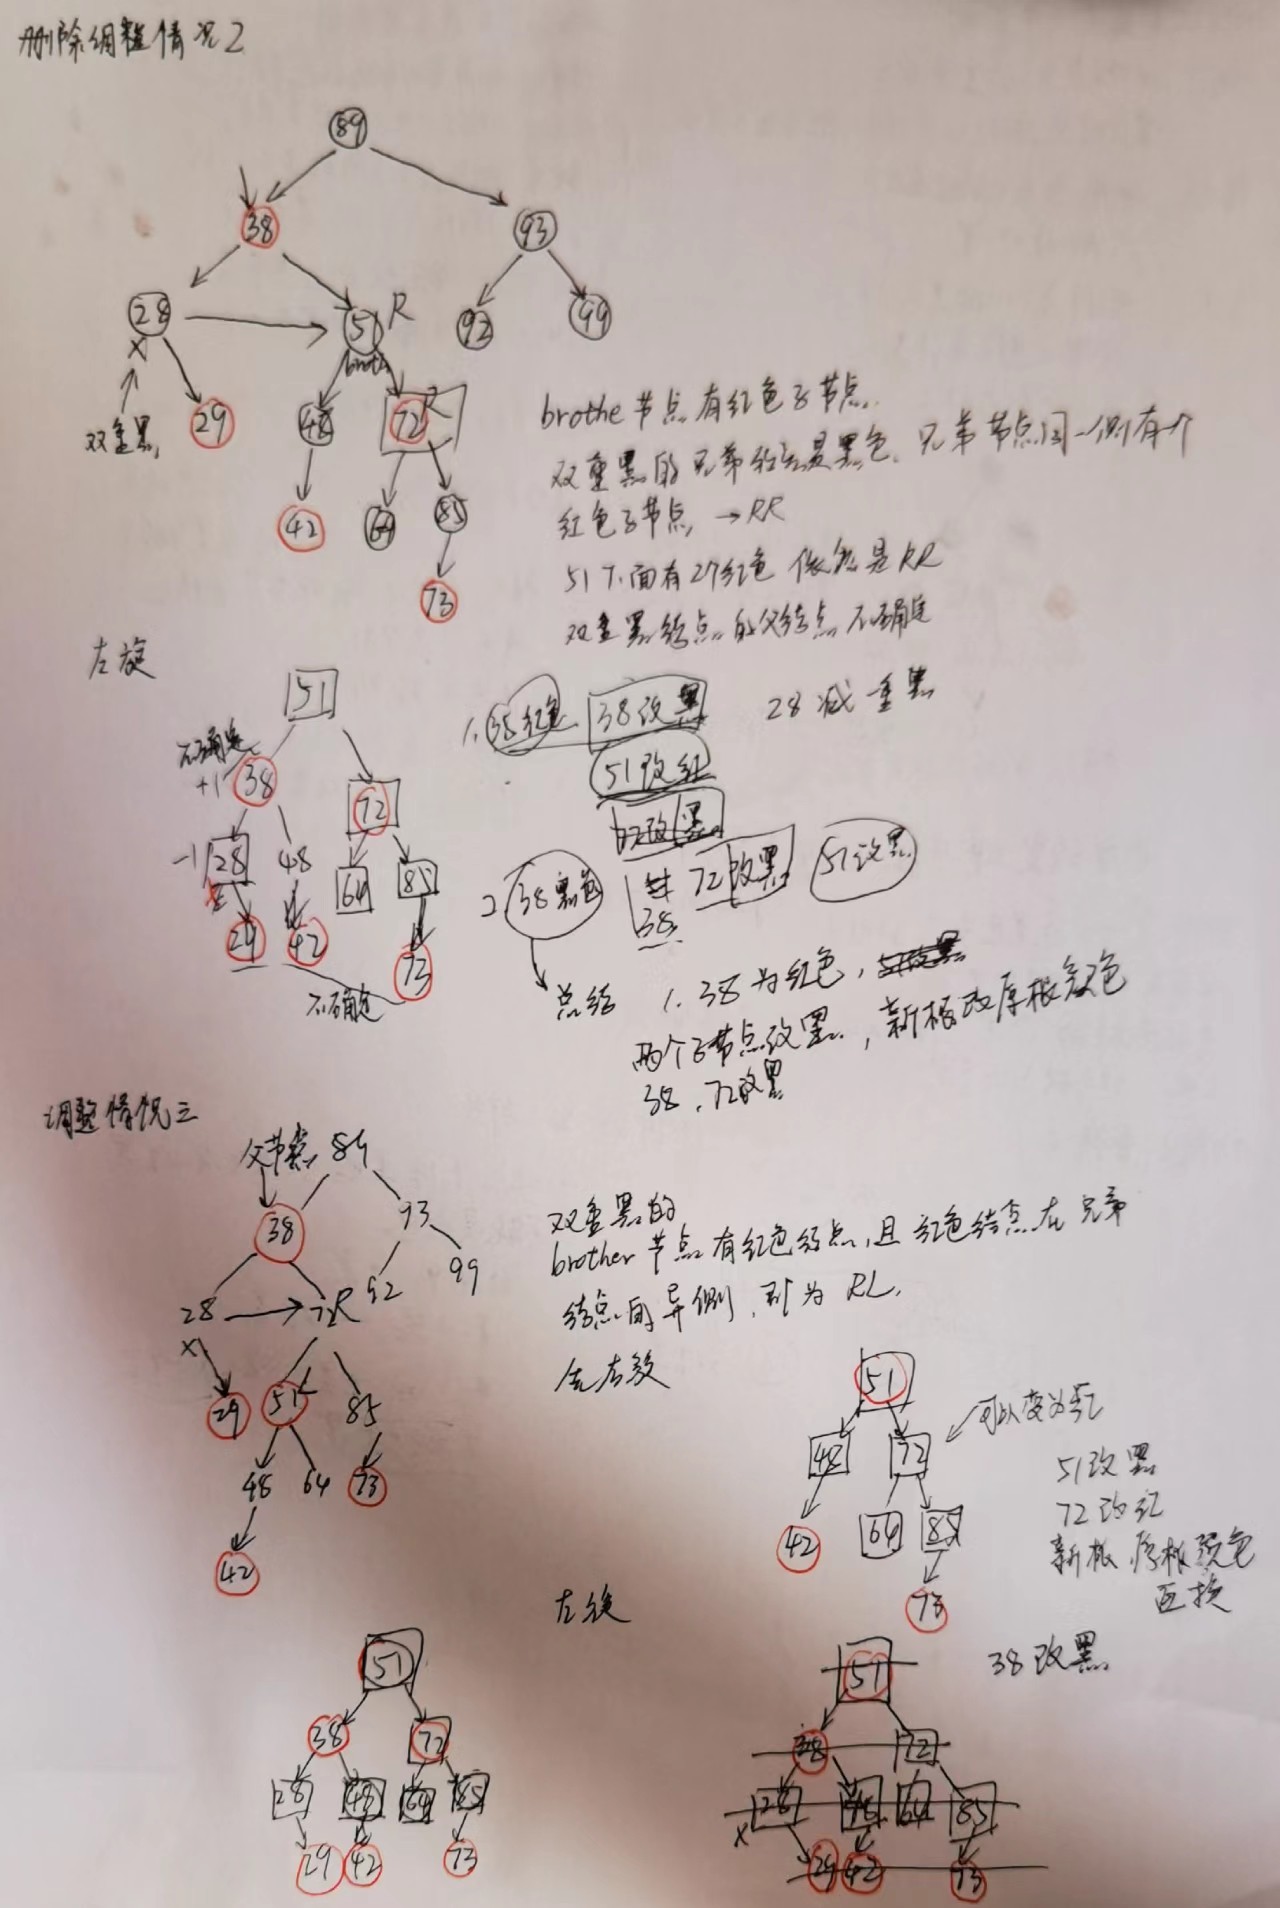 删除调整情况2
89
38
93
28
51
R
92
99
brothe
29
48
72
R
双重黑
42
64
85
73
brothe节点有红色子节点.
双重黑的兄弟结点是黑色, 兄弟节点同一侧有个
红色子节点 → RR
51下面有2个红色 依然是RR
双重黑结点的父结点不确定
左旋
51
不确定
+1
38
72
-1
28
48
64
85
29
42
73
不确定
1. 38红色 38改黑 28减一重黑
51改红
72改黑
2 38黑色 38 72改黑 51改黑
总结 1. 38为红色,
两个子节点改黑, 新根改原根颜色
38、72改黑
调整情况三
父节点 89
38
93
28
72
R
92
99
29
51
L
85
48
64
73
42
双重黑的
brother节点有红色结点,且红色结点在兄弟
结点的异侧, 则为RL,
先右旋
51
48
72
可以变为红
42
64
85
73
51改黑
72改红
新根,原根颜色
互换
左旋
51
38
72
28
48
64
85
29
42
73
38改黑
51
38
72
28
48
64
85
x
29
42
73